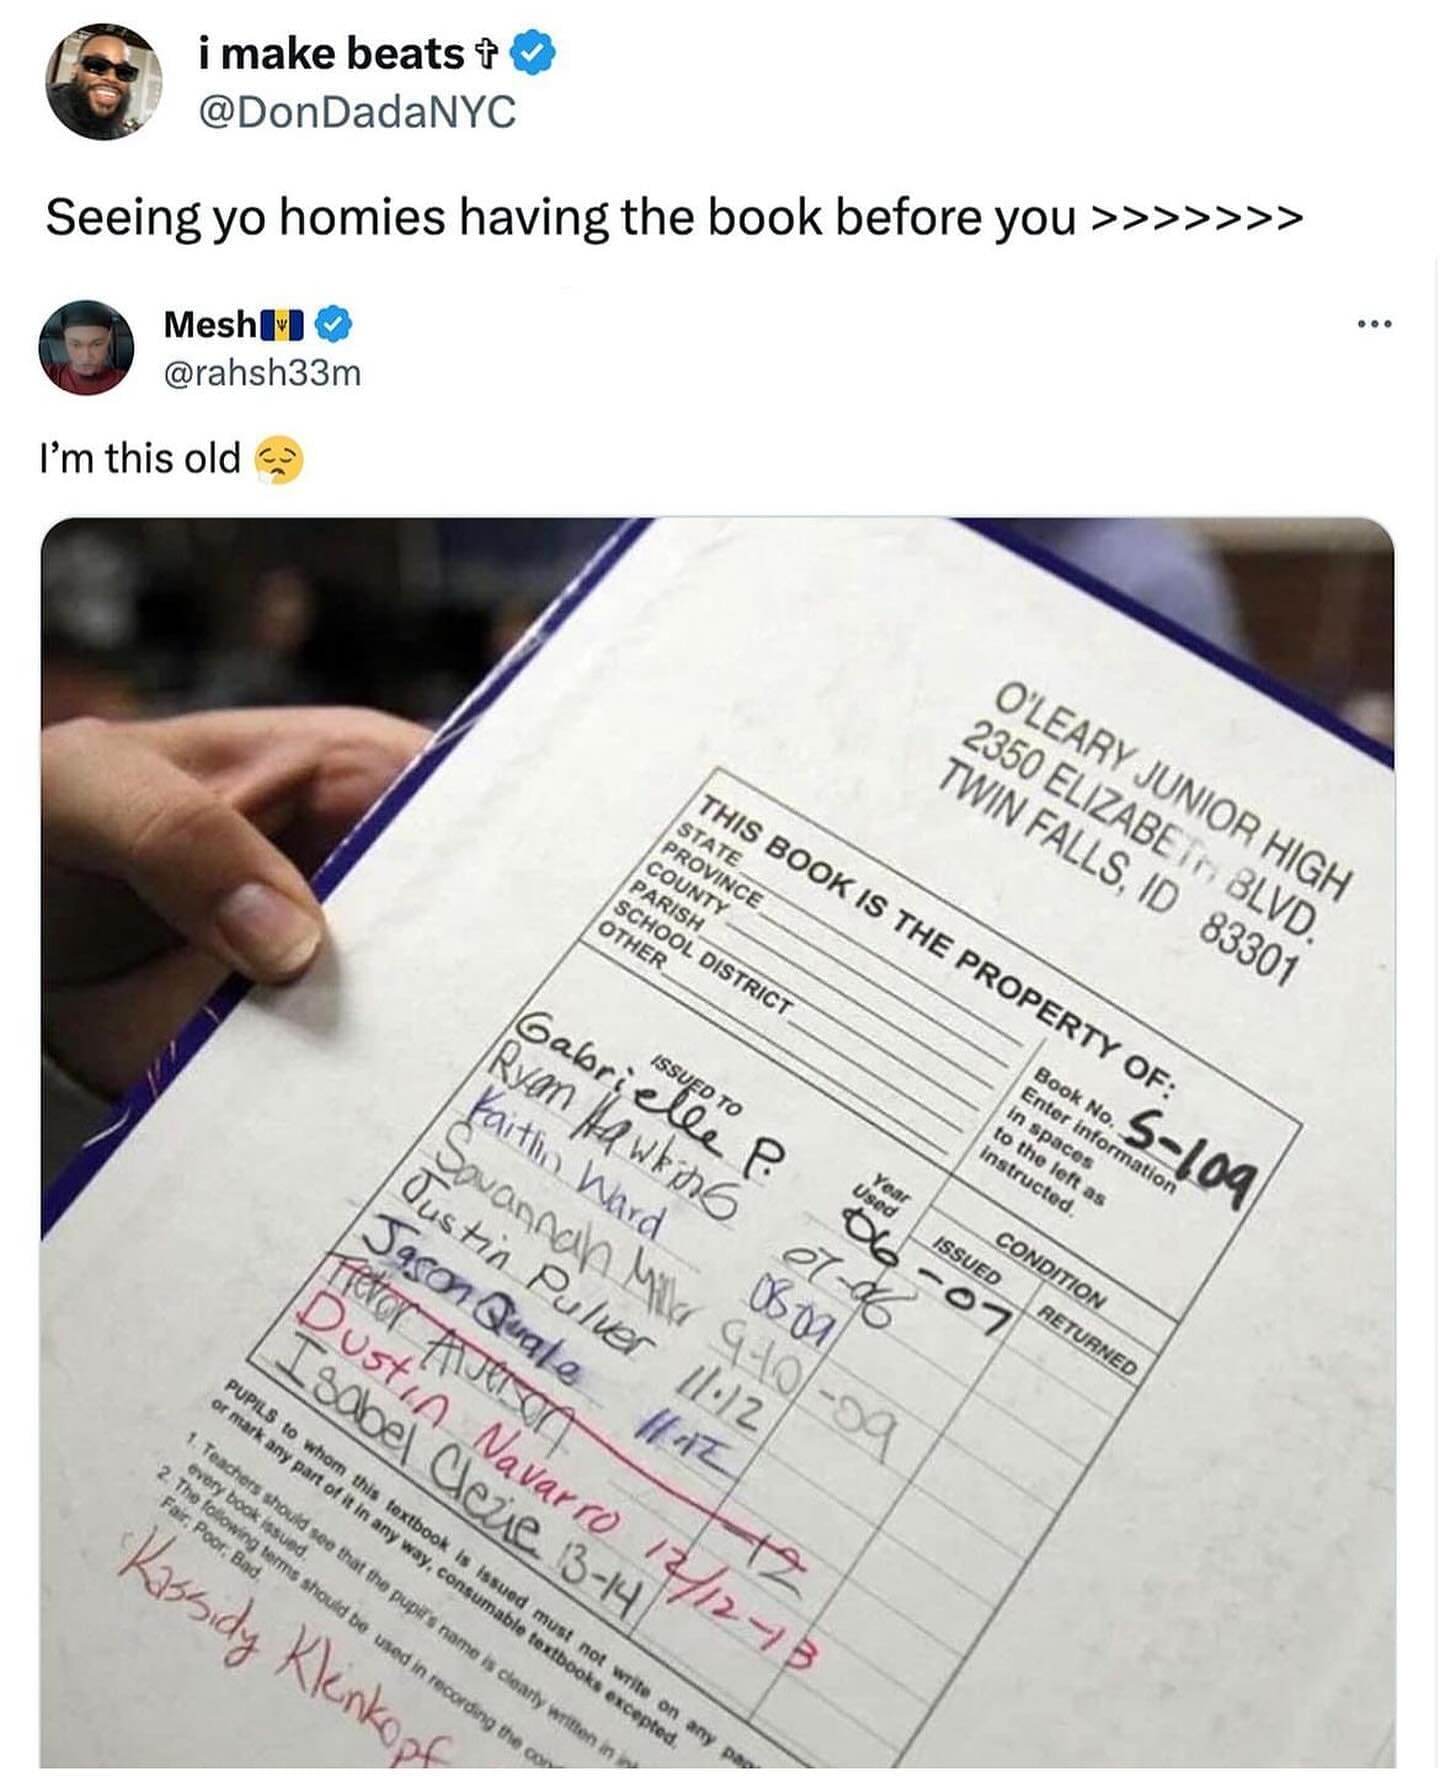 i make beats ✞
@DonDadaNYC
Seeing yo homies having the book before you >>>>>>>
Mesh🇧🇧
@rahsh33m
I'm this old 😮‍💨
O'LEARY JUNIOR HIGH
2350 ELIZABETH BLVD.
TWIN FALLS, ID 83301
THIS BOOK IS THE PROPERTY OF:
STATE
PROVINCE
COUNTY
PARISH
SCHOOL DISTRICT
OTHER
Book No. S-109
Enter information
in spaces
to the left as
instructed.
ISSUED TO
Year
Used
CONDITION
ISSUED
RETURNED
Gabrielle P. 06-07
Ryan Hawkins 07-06
Kaitlin Ward 08 09
Savannah Miller 9-10-09
Justin Pulver 11-12
Jason Quale 11-12
Trevor 12
Dustin Navarro 12/12-13
Isabel Clezie 13-14
PUPILS to whom this textbook is issued must not write on any
or mark any part of it in any way, consumable textbooks excepted.
1. Teachers should see that the pupil's name is clearly written in
every book issued.
2. The following terms should be used in recording the
Fair; Poor; Bad.
Kassidy Kleinkopf